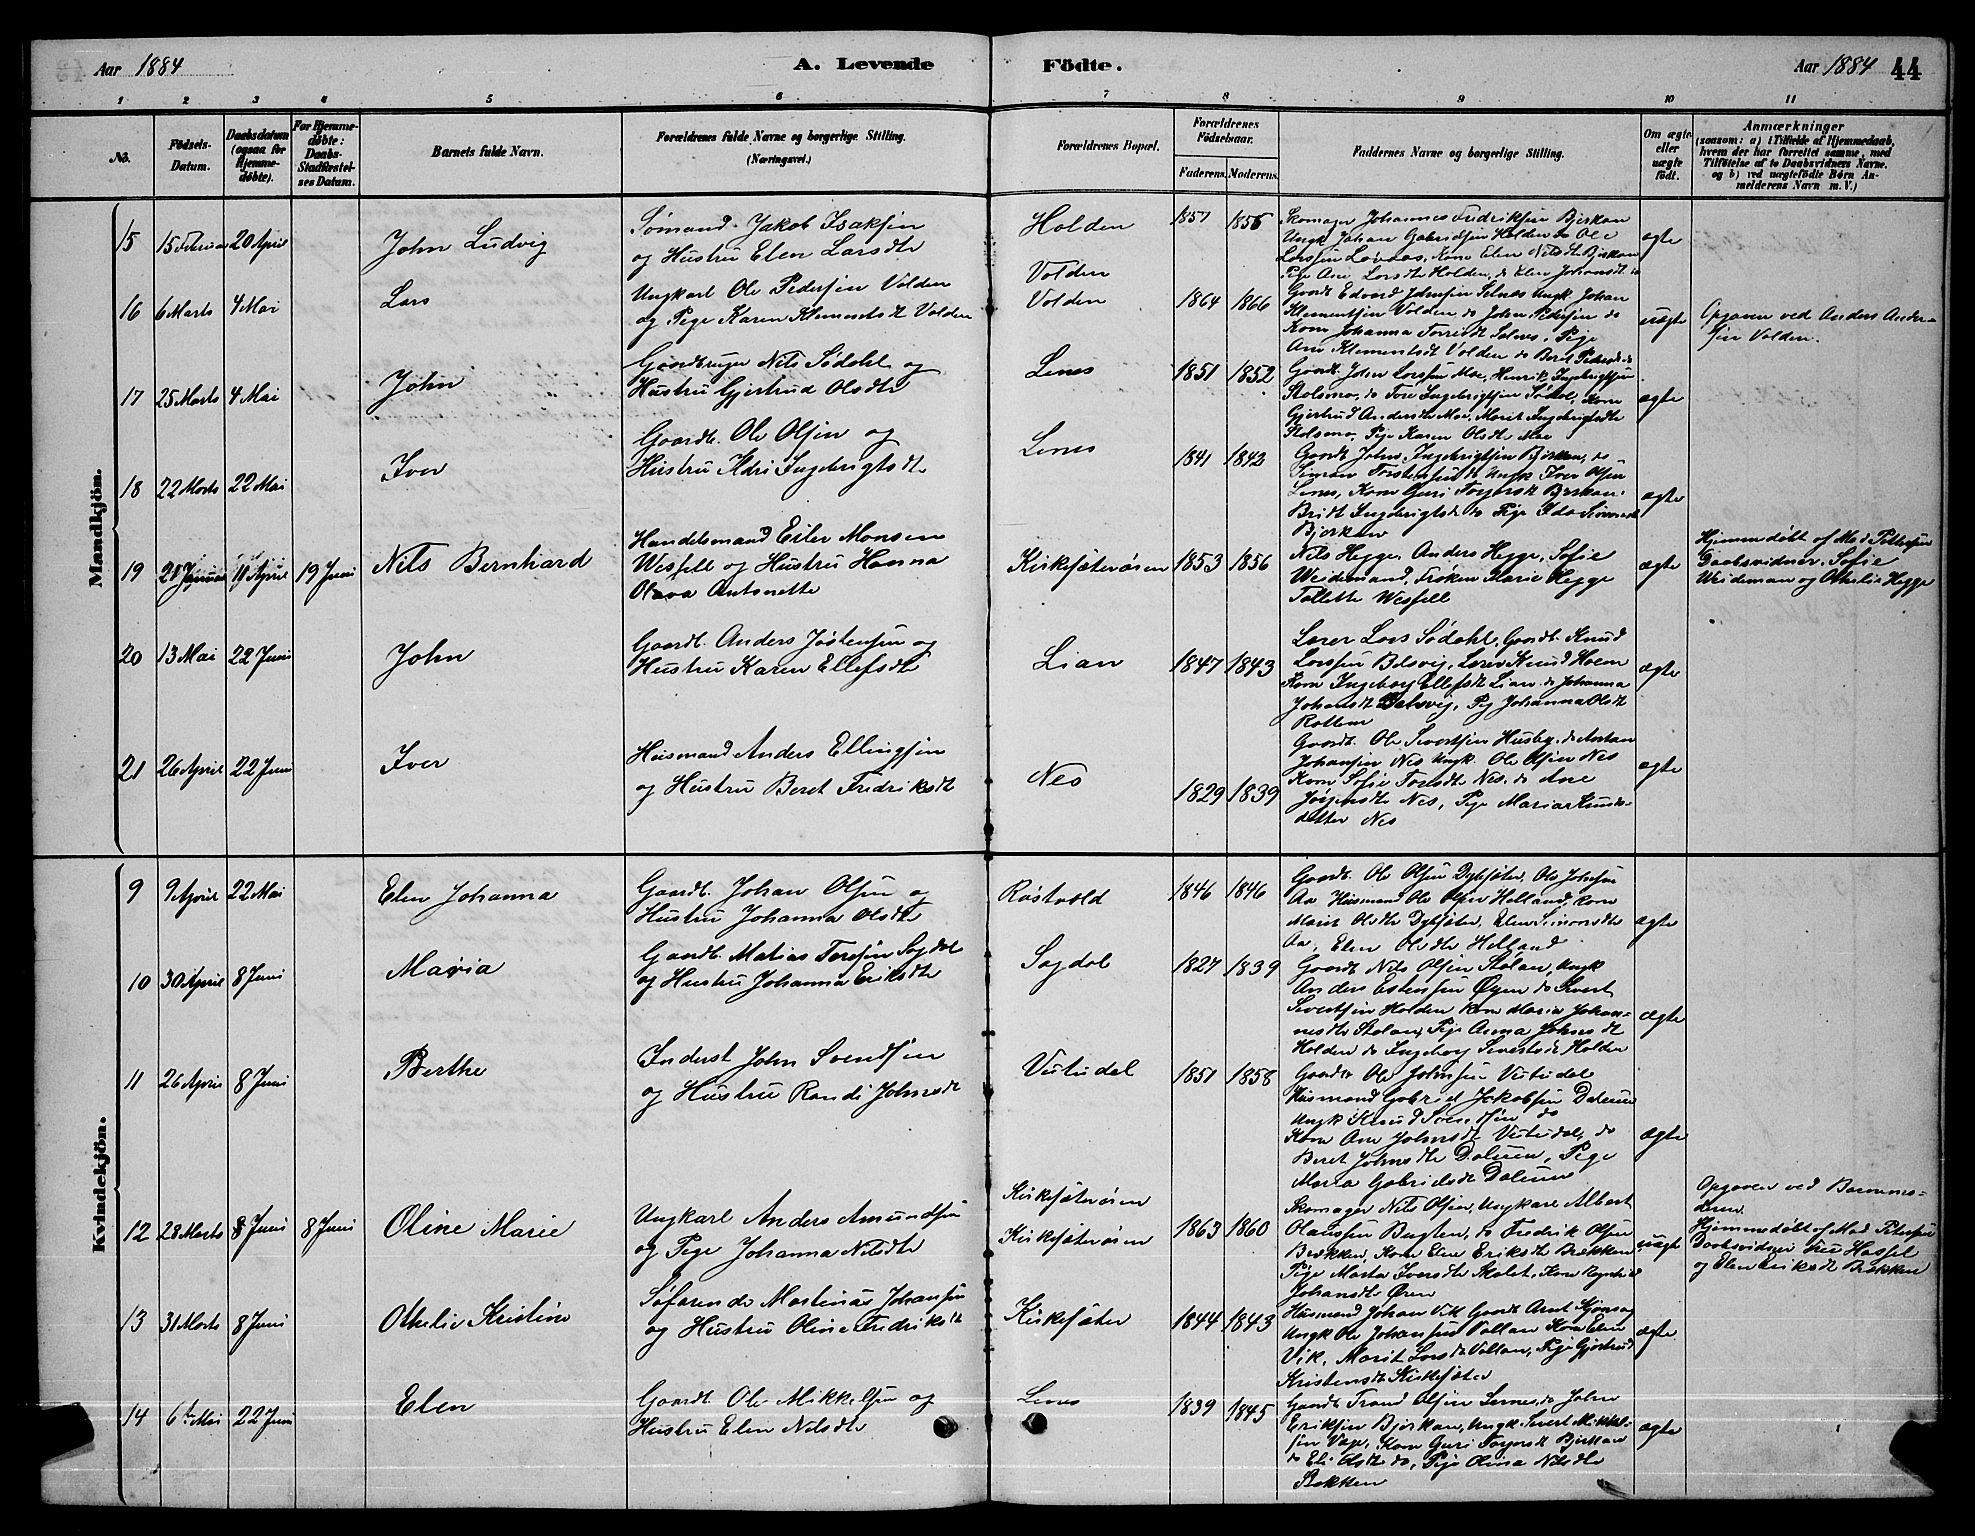 Aar 1884
A. Levende
Födte.
Aar 1884 44
1 2 3 4 5 6 7 8 9 10 11
No.
Fødsels-
Datum.
Daabsdatum
(ogsaa for
Hjemme-
døbte).
For Hjemme-
døbte:
Daabs-
Stadfæstel-
ses Datum.
Barnets fulde Navn.
Forældrenes fulde Navne og borgerlige Stilling.
(Næringsvei.)
Forældrenes Bopæl.
Forældrenes
Fødselsaar.
Faderens. Moderens.
Faddernes Navne og borgerlige Stilling.
Om ægte
eller
uægte
født.
Anmærkninger
(saasom: a) i Tilfælde af Hjemmedaab,
hvem der har forrettet samme, med
Tilføielse af to Daabsvidners Navne.
og b) ved uægtefødte Børn An-
melderens Navn m. V.)
Mandkjön.
15 15 Februar 20 April
John Ludvig
Sømand Jakob Isaksen
og Hustru Elen Larsdtr
Holden
1851 1856
Skomager Johannes Fredriksen Bjerkan
Ungk Johan Gabrielsen Holden do Ole
Larssen Kone Elen Nilsdt Bjerkan
Pige Ane Larsdtr Holden, do Elen Johansdt
ægte
16 6 Marts 4 Mai
Lars
Ungkarl Ole Pedersen Volden
og Pige Karen Klementsdt Volden
Volden
Volden
1864 1866
Gaardb Edvard Johnsen Selnes Ungk Johan
Klementsen Volden do John Pedersen do
Kone Johanna Selnes, Pige
Ane Klementsdt Volden do Beret Pedersdt
uægte
Opgaven ved Anders Ander-
sen Volden.
17 25 Marts 4 Mai
John
Gaardbruger Nils Sødahl og
Hustru Gjertrud Olsdtr
Lenes
1851 1852
Gaardb. John Larssen Moe, Henrik Ingebrigtsen
Stolsmo, do Tore Ingebrigtsen Sødal, Kone
Gjertrud Andersdtr Moe, Marit Ingebrigtsdtr
Stolsmo, Pige Karen Olsdtr Moe
ægte
18 22 Marts 22 Mai
Iver
Gaardb. Ole Olsen og
Hustru Ildri Ingebrigtsdt
Lenes
1841 1842
Gaardb John Ingebrigtsen Bjerkan, do
Simon Torstensen do Ungk Iver Olsen
Lenes, Kone Guri Bjerkan
Bridt Ingebrigtsdt do Pige Ida Simonsdt
Bjerkan
ægte
19 21 Januar 11 April 19 Juni
Nils Bernhard
Handelsmand Eiler Monsen
Wessell og Hustru Hanna
Olava Antonette
Kirksæterøren
1853 1856
Nils Hegge, Anders Hegge, Sofie
Weidemand, Frøken Marie Hegge
Tollette Wessell
ægte
Hjemmedøbt af Mad Pettersen
Daabsvidner. Sofie
Weideman og Othelie Hegge
20 13 Mai 22 Juni
John
Gaardb. Anders Jøstensen og
Hustru Karen Ellefsdt
Lian
1847 1843
Lærer Lars Sødahl, Gaardb. Knud
Larssen Belsvig, Lærer Knud Hoem
Kone Ingeborg Ellefsdt Lian. do Johanna
Johansdt Belsvig, Pig Johanna Olsdt
Rottem
ægte
21 26 April 22 Juni
Iver
Husmand Anders Ellingsen
og Hustru Beret Fredriksdt
Nes
1829 1839
Gaardb. Ole Sivertsen Husby, do
Johansen Nes Ungk. Ole Olsen Nes
Kone Sofie Toresdtr Nes. do Ane
Jørgensdtr Nes, Pige Maria Knuds-
datter Nes
ægte
Kvindekjön.
9 9 April 22 Mai
Elen Johanna
Gaardb. Johan Olsen og
Hustru Johanna Olsdtr
Røstvold
1846 1846
Gaardb. Ole Olsen Dyhsæter, Ole Johnsen
Aa Husmand Ole Olsen Helland, Kone
Marit Olsdtr Dyhsæter, Elen Simonsdtr
Aa, Elen Olsdtr Helland
ægte
10 30 April 8 Juni
Maria
Gaardb. Matias Toresen Sagdal
og Hustru Johanna Eriksdtr
Sagdal
1827 1839
Gaardb Nils Olsen Stolan, Ungk
Anders Estensen Øyen do Sivert
Sivertsen Holden Kone Maria Johan-
nesdtr Stolan, Pige Anna Johnsdt
Holden do Ingeborg Sivertsdt Holden
ægte
11 26 April 8 Juni
Berthe
Inderst John Svendsen
og Hustru Randi Johnsdt
Vutudal
1851 1858
Gaardb Ole Johnsen Vutudal
Husmand Gabriel Jakobsen Dalum
Ungk Knud Svendsen do
Kone Ane Johnsdt Vutudal, do
Beret Johnsdtr Dalum, Pige
Maria Gabrielsdt Dalum
ægte
12 28 Marts 8 Juni 8 Juni
Oline Marie
Ungkarl Anders Amundsen
og Pige Johanna Nilsdtr
Kirksæterøren
Kirksæterøren
1863 1860
Skomager Nils Olsen, Ungkarl Albert
Olaussen Bugten, do Fredrik Olsen
Brækken, Kone Elen Eriksdt Brækken
Pige Marta Iversdtr Skalet, Kone Ragnhild
Johansdt Øren
uægte
Opgaven ved Barnmo-
deren.
Hjemmedøbt af Mad Petersen
Daabsvidner Fru Hassel
og Elen Eriksdt Brækken
13 31 Marts 8 Juni
Othelie Kristine
Søfarende Martinus Johansen
og Hustru Oline Fredriksdt
Kirksæter
1844 1843
Husmand Johan Vik Gaardb Arnt
Ungk Ole Johansen Vollan Kone Elen
Vik, Marit Larsdt Vollan, Pige Gjertrud
Kristensdt Kirksæter
ægte
14 6te Mai 22 Juni
Elen
Gaardb. Ole Mikkelsen og
Hustru Elen Nilsdtr
Lenes
1839 1845
Gaardb Trond Olsen Lenes, do John
Eriksen Bjerkan, Ungk. Sivert Mikkel-
sen Vage, Kone Guri Bjerkan
do Eli Olsdt do, Pige Olina Nilsdtr
Bekken
ægte